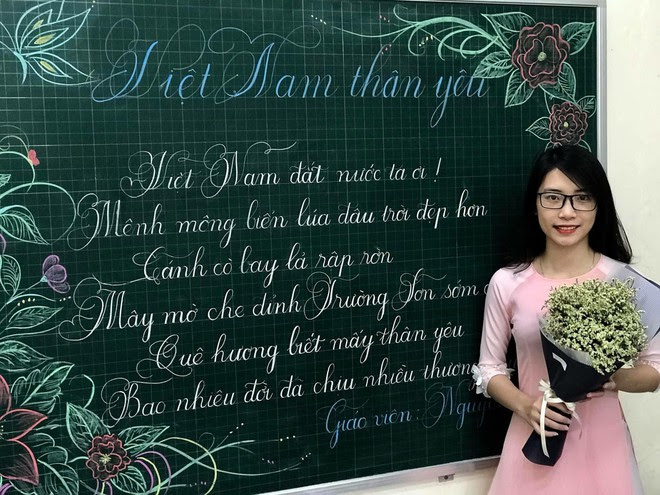 Việt Nam thân yêu
Việt Nam đất nước ta ơi !
Mênh mông biển lúa đâu trời đẹp hơn
Cánh cò bay lả rập rờn
Mây mờ che đỉnh Trường Sơn sớm
Quê hương biết mấy thân yêu
Bao nhiêu đời đã chịu nhiều thương
Giáo viên: Nguy